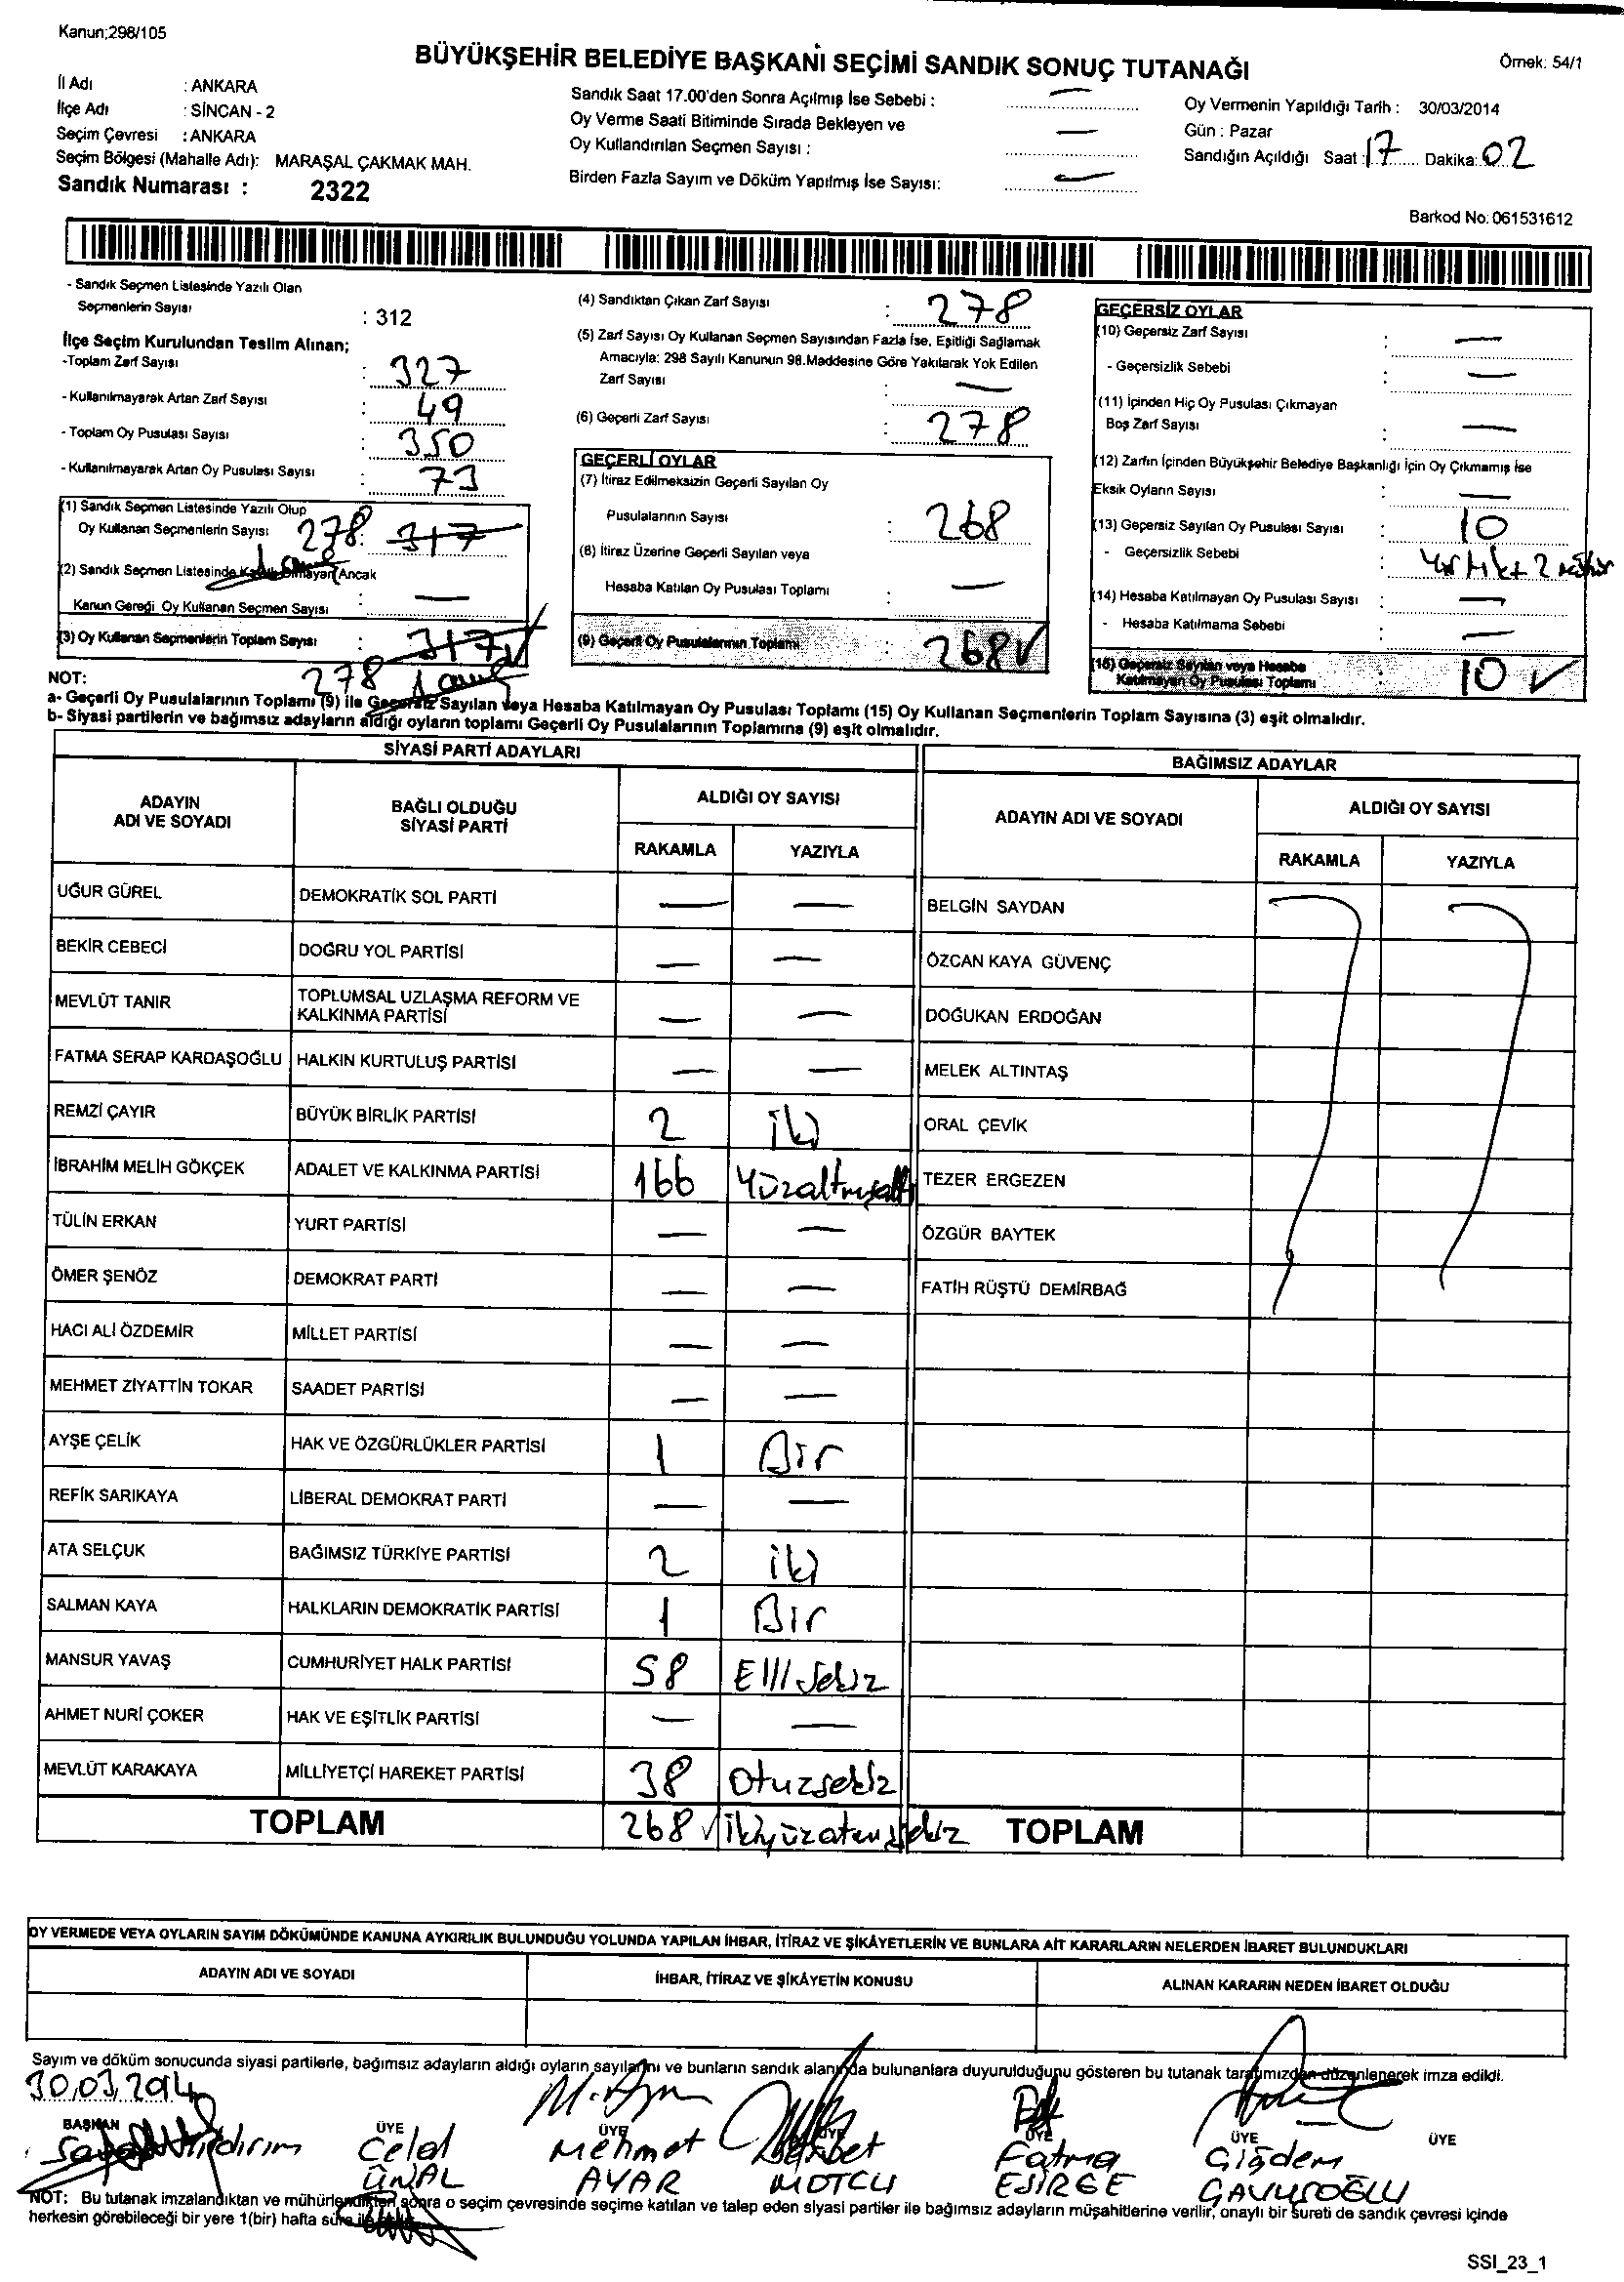 Kanun;298/105
BÜYÜKŞEHİR BELEDİYE BAŞKANI SEÇİMİ SANDIK SONUÇ TUTANAĞI
Örnek: 54/1
İl Adı : ANKARA
İlçe Adı : SİNCAN - 2
Seçim Çevresi : ANKARA
Seçim Bölgesi (Mahalle Adı): MARAŞAL ÇAKMAK MAH.
Sandık Numarası : 2322
Sandık Saat 17.00'den Sonra Açılmış İse Sebebi : —
Oy Verme Saati Bitiminde Sırada Bekleyen ve
Oy Kullandırılan Seçmen Sayısı : —
Birden Fazla Sayım ve Döküm Yapılmış İse Sayısı: —
Oy Vermenin Yapıldığı Tarih : 30/03/2014
Gün : Pazar
Sandığın Açıldığı Saat : 17 Dakika: 02
Barkod No: 061531612
- Sandık Seçmen Listesinde Yazılı Olan
Seçmenlerin Sayısı : 312
İlçe Seçim Kurulundan Teslim Alınan;
-Toplam Zarf Sayısı : 327
- Kullanılmayarak Artan Zarf Sayısı : 49
- Toplam Oy Pusulası Sayısı : 350
- Kullanılmayarak Artan Oy Pusulası Sayısı : 73
(1) Sandık Seçmen Listesinde Yazılı Olup
Oy Kullanan Seçmenlerin Sayısı 278 : 317
(2) Sandık Seçmen Listesinde Kayıtlı Olmayan Ancak
Kanun Gereği Oy Kullanan Seçmen Sayısı : —
(3) Oy Kullanan Seçmenlerin Toplam Sayısı : 317
278
(4) Sandıktan Çıkan Zarf Sayısı : 278
(5) Zarf Sayısı Oy Kullanan Seçmen Sayısından Fazla İse, Eşitliği Sağlamak
Amacıyla: 298 Sayılı Kanunun 98.Maddesine Göre Yakılarak Yok Edilen
Zarf Sayısı : —
(6) Geçerli Zarf Sayısı : 278
GEÇERLİ OYLAR
(7) İtiraz Edilmeksizin Geçerli Sayılan Oy
Pusulalarının Sayısı : 268
(8) İtiraz Üzerine Geçerli Sayılan veya
Hesaba Katılan Oy Pusulası Toplamı : —
(9) Geçerli Oy Pusulalarının Toplamı : 268 ✓
GEÇERSİZ OYLAR
(10) Geçersiz Zarf Sayısı : —
- Geçersizlik Sebebi : —
(11) İçinden Hiç Oy Pusulası Çıkmayan
Boş Zarf Sayısı : —
(12) Zarfın İçinden Büyükşehir Belediye Başkanlığı İçin Oy Çıkmamış ise
Eksik Oyların Sayısı : —
(13) Geçersiz Sayılan Oy Pusulası Sayısı : 10
- Geçersizlik Sebebi : Yırtık+2 mühür
(14) Hesaba Katılmayan Oy Pusulası Sayısı : —
- Hesaba Katılmama Sebebi : —
(15) Geçersiz Sayılan veya Hesaba
Katılmayan Oy Pusulası Toplamı : 10 ✓
NOT:
a- Geçerli Oy Pusulalarının Toplamı (9) ile Geçersiz Sayılan veya Hesaba Katılmayan Oy Pusulası Toplamı (15) Oy Kullanan Seçmenlerin Toplam Sayısına (3) eşit olmalıdır.
b- Siyasi partilerin ve bağımsız adayların aldığı oyların toplamı Geçerli Oy Pusulalarının Toplamına (9) eşit olmalıdır.
SİYASİ PARTİ ADAYLARI
BAĞIMSIZ ADAYLAR
ADAYIN ADI VE SOYADI
BAĞLI OLDUĞU SİYASİ PARTİ
ALDIĞI OY SAYISI
RAKAMLA YAZIYLA
ADAYIN ADI VE SOYADI
ALDIĞI OY SAYISI
RAKAMLA YAZIYLA
UĞUR GÜREL DEMOKRATİK SOL PARTİ — — BELGİN SAYDAN
BEKİR CEBECİ DOĞRU YOL PARTİSİ — — ÖZCAN KAYA GÜVENÇ
MEVLÜT TANIR TOPLUMSAL UZLAŞMA REFORM VE KALKINMA PARTİSİ — — DOĞUKAN ERDOĞAN
FATMA SERAP KARDAŞOĞLU HALKIN KURTULUŞ PARTİSİ — — MELEK ALTINTAŞ
REMZİ ÇAYIR BÜYÜK BİRLİK PARTİSİ 2 iki ORAL ÇEVİK
İBRAHİM MELİH GÖKÇEK ADALET VE KALKINMA PARTİSİ 166 Yüzaltmışaltı TEZER ERGEZEN
TÜLİN ERKAN YURT PARTİSİ — — ÖZGÜR BAYTEK
ÖMER ŞENÖZ DEMOKRAT PARTİ — — FATİH RÜŞTÜ DEMİRBAĞ
HACI ALİ ÖZDEMİR MİLLET PARTİSİ — —
MEHMET ZİYATTİN TOKAR SAADET PARTİSİ — —
AYŞE ÇELİK HAK VE ÖZGÜRLÜKLER PARTİSİ 1 Bir
REFİK SARIKAYA LİBERAL DEMOKRAT PARTİ — —
ATA SELÇUK BAĞIMSIZ TÜRKİYE PARTİSİ 2 iki
SALMAN KAYA HALKLARIN DEMOKRATİK PARTİSİ 1 Bir
MANSUR YAVAŞ CUMHURİYET HALK PARTİSİ 58 Elli sekiz
AHMET NURİ ÇOKER HAK VE EŞİTLİK PARTİSİ — —
MEVLÜT KARAKAYA MİLLİYETÇİ HAREKET PARTİSİ 38 Otuzsekiz
TOPLAM 268 ✓ TOPLAM
OY VERMEDE VEYA OYLARIN SAYIM DÖKÜMÜNDE KANUNA AYKIRILIK BULUNDUĞU YOLUNDA YAPILAN İHBAR, İTİRAZ VE ŞİKÂYETLERİN VE BUNLARA AİT KARARLARIN NELERDEN İBARET BULUNDUKLARI
ADAYIN ADI VE SOYADI İHBAR, İTİRAZ VE ŞİKÂYETİN KONUSU ALINAN KARARIN NEDEN İBARET OLDUĞU
Sayım ve döküm sonucunda siyasi partilerle, bağımsız adayların aldığı oyların sayılarını ve bunların sandık alanında bulunanlara duyurulduğunu gösteren bu tutanak tarafımızdan düzenlenerek imza edildi.
30.03.2014
BAŞKAN ÜYE ÜYE ÜYE ÜYE ÜYE ÜYE
Yıldırım Celal Mehmet Fatma Çiğdem
ÜNAL AYAR MUTCU ESİRGE ÇAVUŞOĞLU
NOT: Bu tutanak imzalandıktan ve mühürlendikten sonra o seçim çevresinde seçime katılan ve talep eden siyasi partiler ile bağımsız adayların müşahitlerine verilir, onaylı bir sureti de sandık çevresi içinde
herkesin görebileceği bir yere 1(bir) hafta süre ile
SSI_23_1